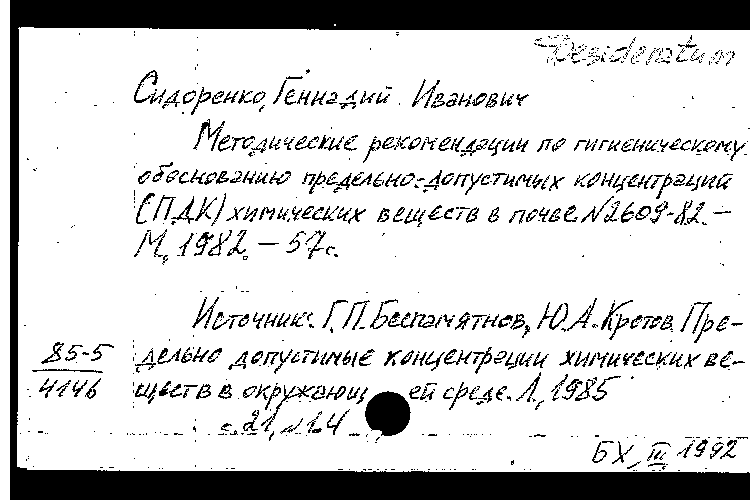 Desideratum
Сидоренко, Геннадий Иванович
Методические рекомендации по гигиеническому
обоснованию предельно-допустимых концентраций
(ПДК) химических веществ в почве №2609-82. –
М., 1982. – 57с.
Источник: Г.П. Беспамятнов, Ю.А. Кротов. Пре-
85-5 дельно допустимые концентрации химических ве-
4146 ществ в окружающей среде. Л., 1985
с. 21, №14
БХ, III, 1992